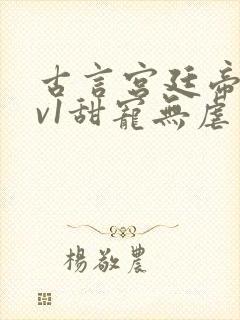 古言宮廷帝
v1甜寵無虐
楊敬農